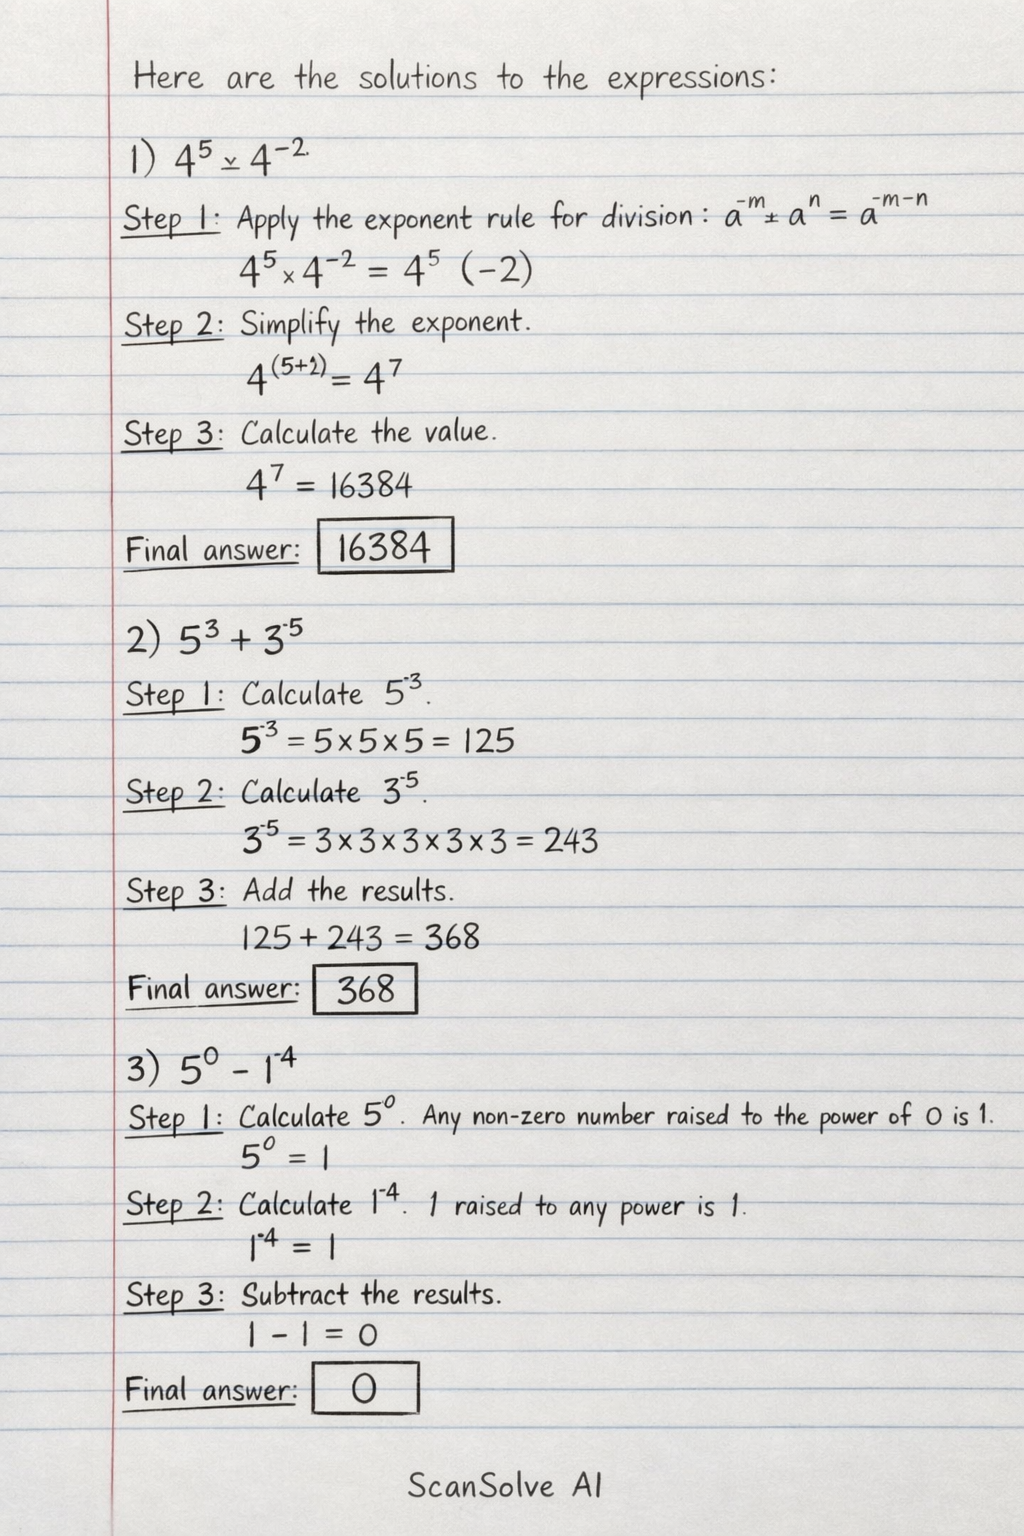 Here are the solutions to the expressions:
1) 4⁵ ⨱ 4⁻²
Step 1: Apply the exponent rule for division: a⁻ᵐ ± aⁿ = a⁻ᵐ⁻ⁿ
4⁵ × 4⁻² = 4⁵ (-2)
Step 2: Simplify the exponent.
4⁽⁵⁺²⁾ = 4⁷
Step 3: Calculate the value.
4⁷ = 16384
Final answer: 16384
2) 5³ + 3⁻⁵
Step 1: Calculate 5⁻³.
5⁻³ = 5×5×5 = 125
Step 2: Calculate 3⁻⁵.
3⁻⁵ = 3×3×3×3×3 = 243
Step 3: Add the results.
125 + 243 = 368
Final answer: 368
3) 5⁰ - 1⁻⁴
Step 1: Calculate 5⁰. Any non-zero number raised to the power of 0 is 1.
5⁰ = 1
Step 2: Calculate 1⁻⁴. 1 raised to any power is 1.
1⁻⁴ = 1
Step 3: Subtract the results.
1 - 1 = 0
Final answer: 0
ScanSolve AI